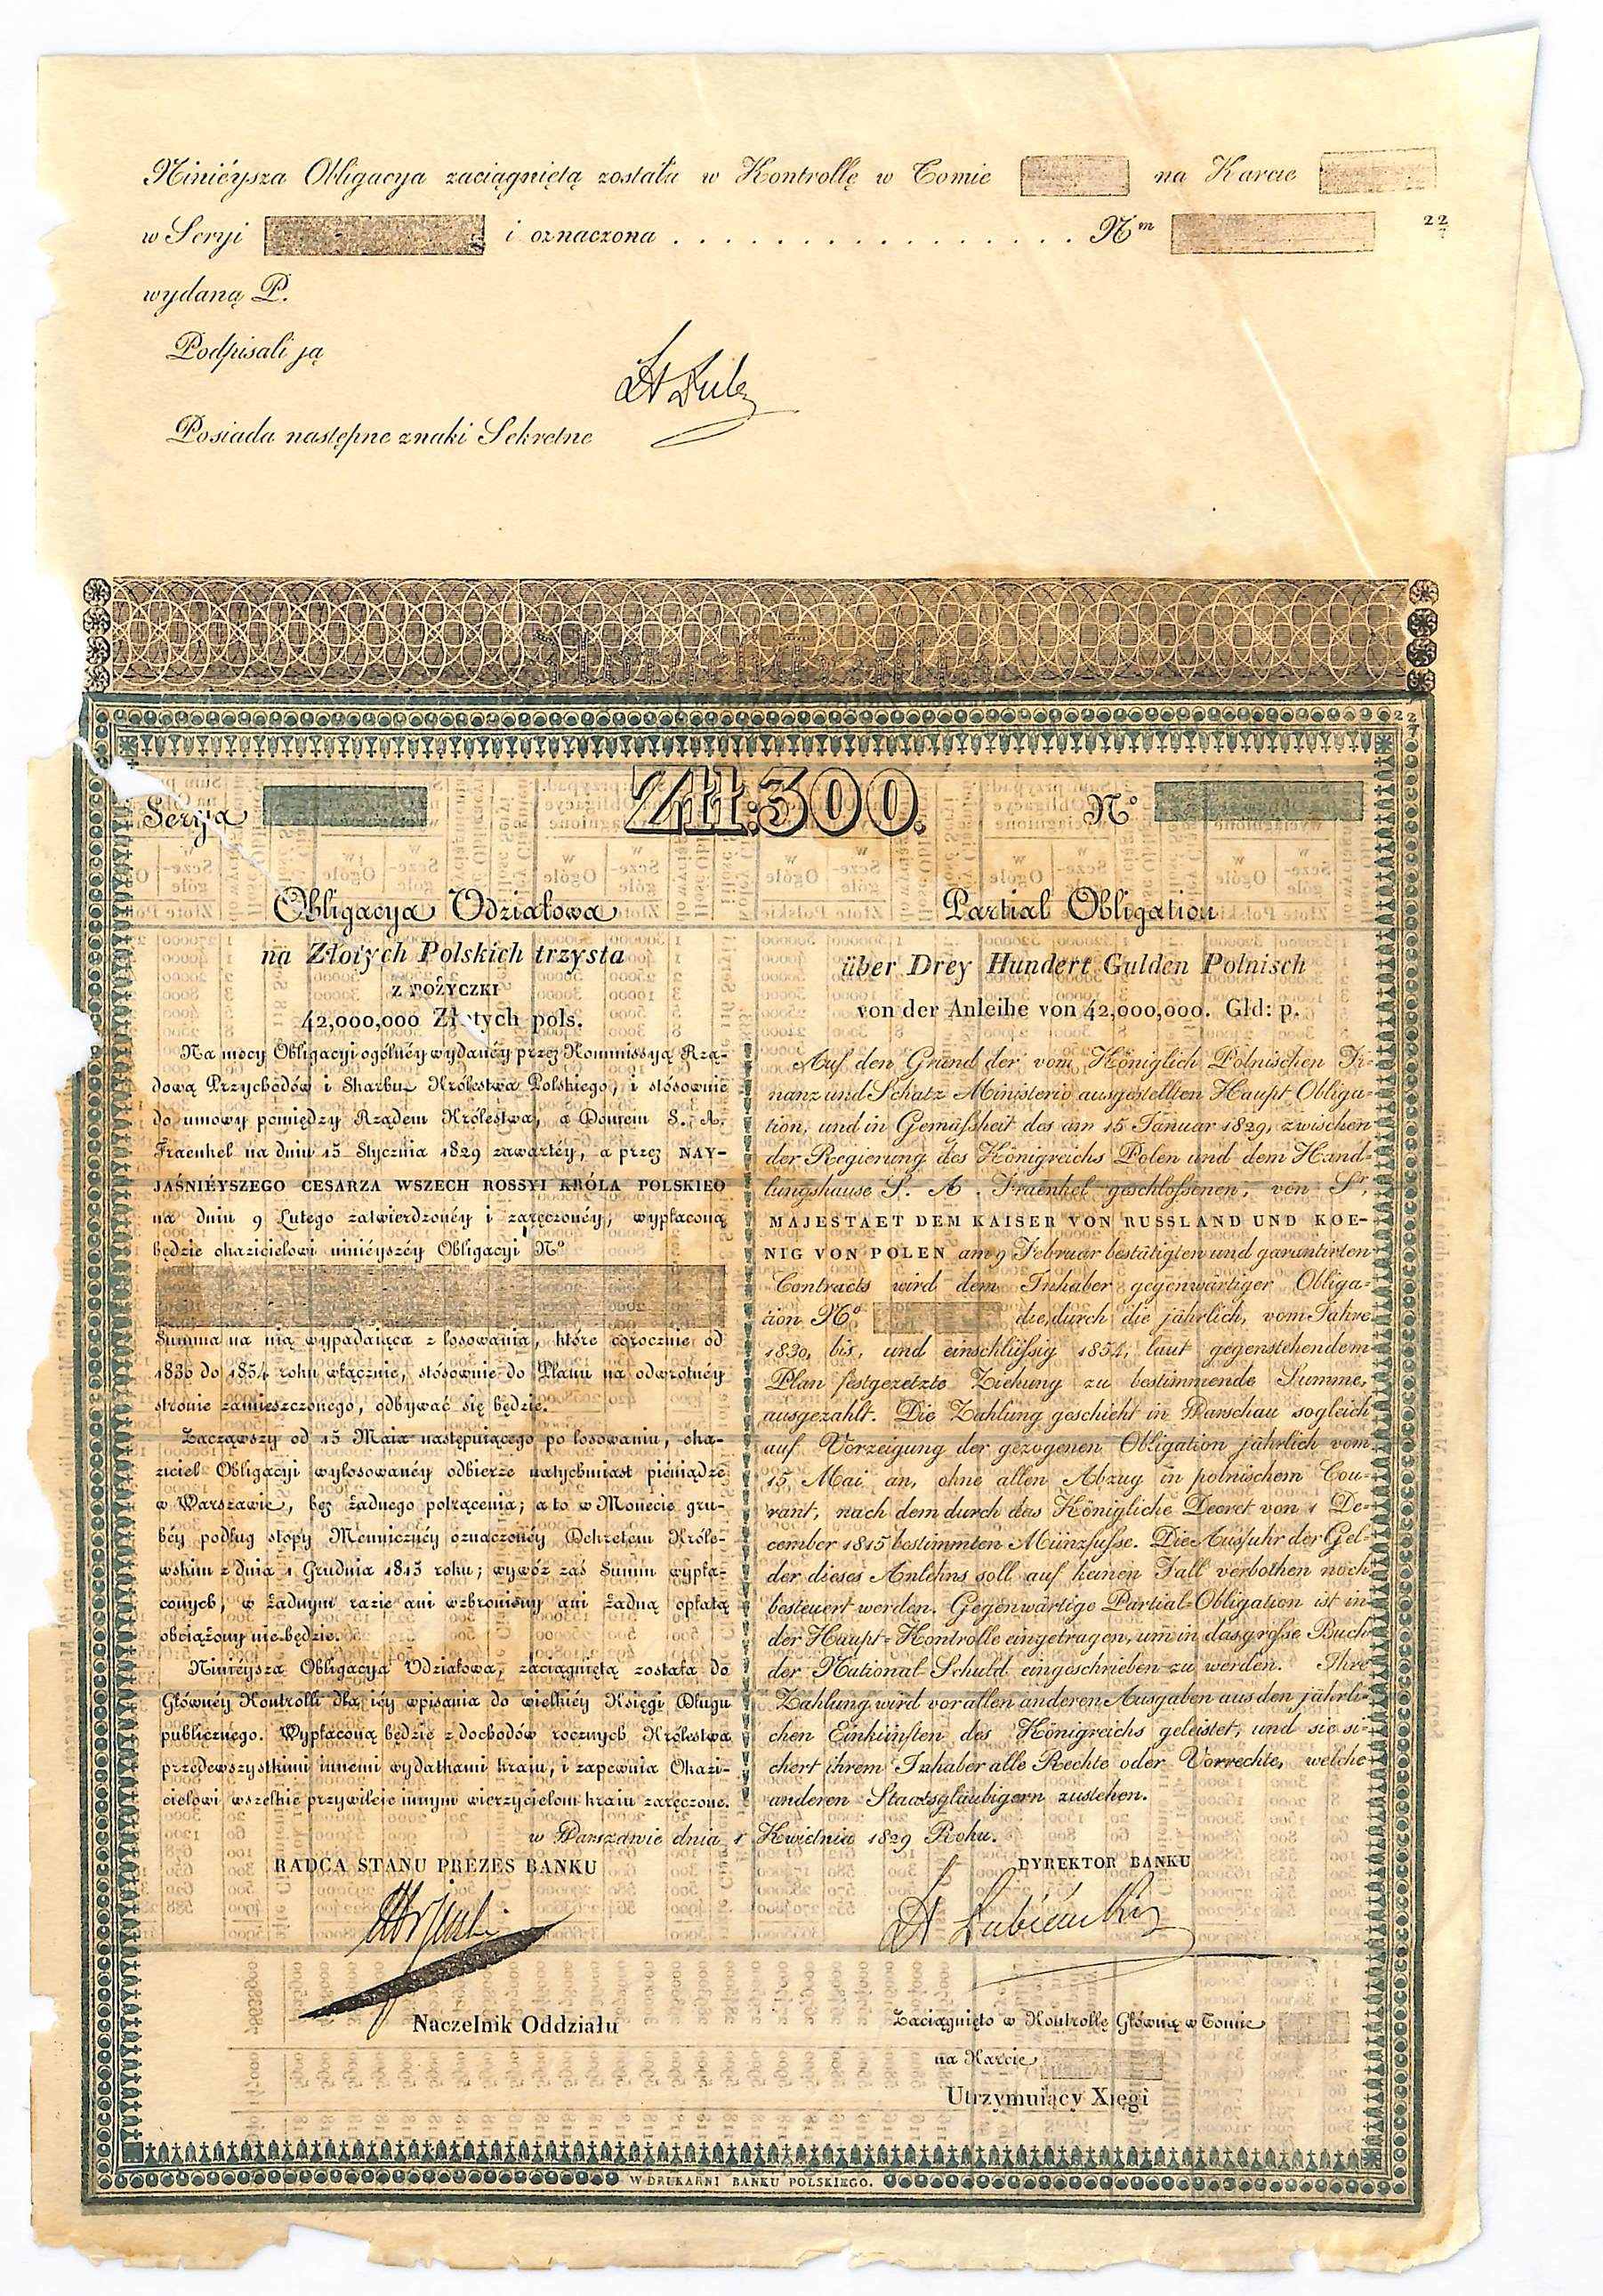 Niniéysza Obligacya zaciągniętą została w Kontrollę w Tomie na Karcie
w Seryi i oznaczona . . . . . . . . . . . . . . . . . N<sup>m</sup> 22/7
wydaną P.
Podpisali ją
Posiada następne znaki Sekretne
22/7
Serya Złł: 300. N°
Obligacya Udziałowa
na Złotych Polskich trzysta
Z POŻYCZKI
42,000,000 Złotych pols.
Na mocy Obligacyi ogólnéy wydanéy przez Kommissyą Rzą-
dową Przychodów i Skarbu Królestwa Polskiego, i stósownie
do umowy pomiędzy Rządem Królestwa, a Domem S. A.
Fraenkel na dniu 15 Stycznia 1829 zawartéy, a przez NAY-
JAŚNIÉYSZEGO CESARZA WSZECH ROSSYI KRÓLA POLSKIEO
na dniu 9 Lutego zatwierdzonéy i zaręczonéy, wypłaconą
będzie okazicielowi niniéyszéy Obligacyi N°
Summa na nią wypadaiąca z losowania, które corocznie od
1830 do 1854 roku włącznie, stósownie do Planu na odwrotnéy
stronie zamieszczonego, odbywać się będzie.
Zacząwszy od 15 Maia następuiącego po losowaniu, oka-
ziciel Obligacyi wylosowanéy odbierze natychmiast pieniądze
w Warszawie, bez żadnego potrącenia; a to w Monecie gru-
béy podług stopy Menniczéy oznaczonéy Dekretem Króle-
wskim z dnia 1 Grudnia 1815 roku; wywóz zaś Summ wypła-
conych, w żadnym razie ani wzbroniony ani żadną opłatą
obciążony nie będzie.
Niniéysza Obligacya Udziałowa, zaciągniętą została do
Głównéy Kontrolli dla iéy wpisania do wielkiéy Księgi Długu
publicznego. Wypłaconą będzie z dochodów rocznych Królestwa
przedewszystkimi innemi wydatkami kraiu, i zapewnia Okazi-
cielowi wszelkie przywileje innym wierzycielom kraiu zaręczone.
Partial Obligation
über Drey Hundert Gulden Polnisch
von der Anleihe von 42,000,000. Gld: p.
Auf den Grund der vom Königlich Polnischen Fi-
nanz und Schatz Ministerio ausgestellten Haupt Obliga-
tion, und in Gemäßheit des am 15 Januar 1829, zwischen
der Regierung des Königreichs Polen und dem Hand-
lungshause S. A. Fraenkel geschloßenen, von Sr.
MAJESTAET DEM KAISER VON RUSSLAND UND KOE-
NIG VON POLEN am 9 Februar bestätigten und garantirten
Contracts wird dem Inhaber gegenwärtiger Obliga-
cion N° die, durch die jährlich, vom Jahre
1830, bis, und einschlüßig 1854, laut gegenstehendem
Plan festgezetzte Ziehung zu bestimmende Summe,
ausgezahlt. Die Zahlung geschieht in Warschau sogleich
auf Vorzeigung der gezogenen Obligation jährlich vom
15, Mai an, ohne allen Abzug in polnischem Cou-
rant, nach dem durch das Königliche Decret von 1 De-
cember 1815 bestimmten Münzfuße. Die Ausfuhr der Gel-
der dieses Anlehns soll auf keinen Fall verbothen noch
besteuert werden. Gegenwärtige Partial-Obligation ist in
der Haupt-Kontrolle eingetragen, um in das große Buch
der National Schuld eingeschrieben zu werden. Ihre
Zahlung wird vor allen anderen Ausgaben aus den jährli-
chen Einkünften des Königreichs geleistet, und sie si-
chert ihrem Inhaber alle Rechte oder Vorrechte, welche
anderen Staatsgläubigern zustehen.
w Warszawie dnia 1 Kwietnia 1829 Roku.
RADCA STANU PREZES BANKU
DYREKTOR BANKU
Lubieński
Naczelnik Oddziału
Zaciągnięto w Kontrollę Główną w Tomie
na Karcie
Utrzymuiący Xięgi
W DRUKARNI BANKU POLSKIEGO.